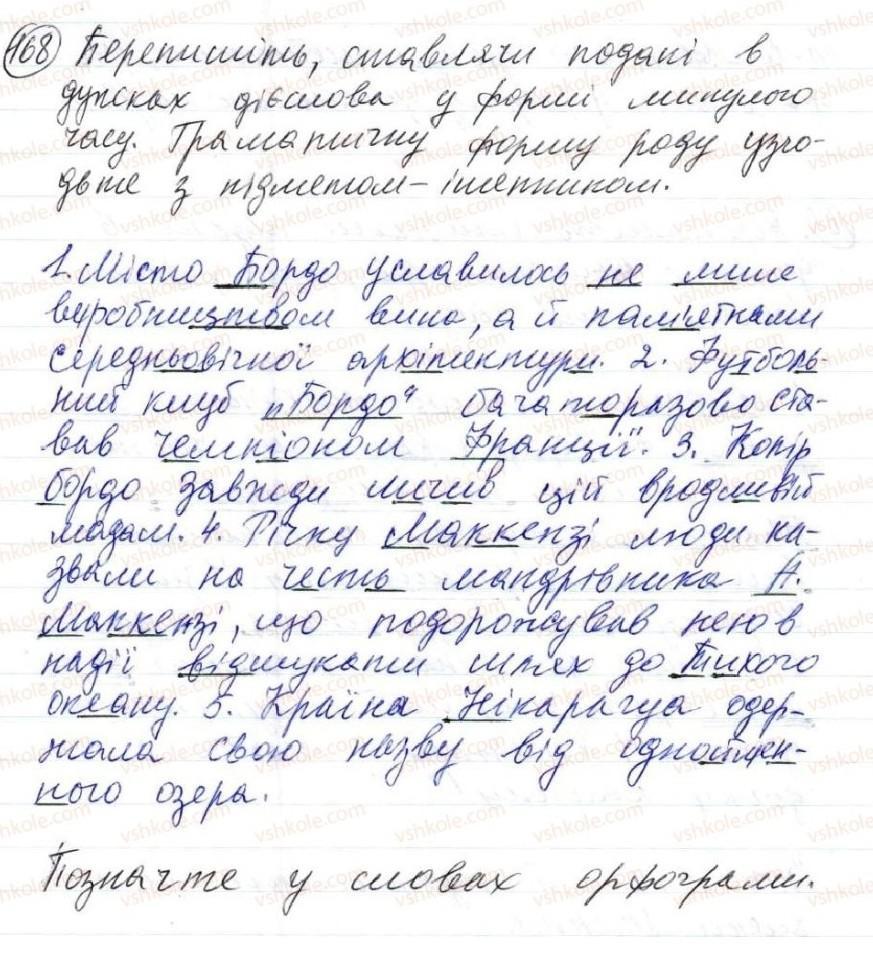 168 Перепишіть, ставлячи подані в
дужках дієслова у формі минулого
часу. Граматичну форму роду узго-
дьте з підметом-іменником.
1. Місто Бордо уславилось не лише
виробництвом вина, а й пам'ятками
середньовічної архітектури. 2. Футболь-
ний клуб "Бордо" багаторазово ста-
вав чемпіоном Франції. 3. Колір
бордо завжди личив цій вродливій
мадам. 4. Річку Маккензі люди на-
звали на честь мандрівника А.
Маккензі, що подорожував нею в
надії відшукати шлях до Тихого
океану. 5. Країна Нікарагуа одер-
жала свою назву від однаймен-
ного озера.
Позначте у словах орфограми.